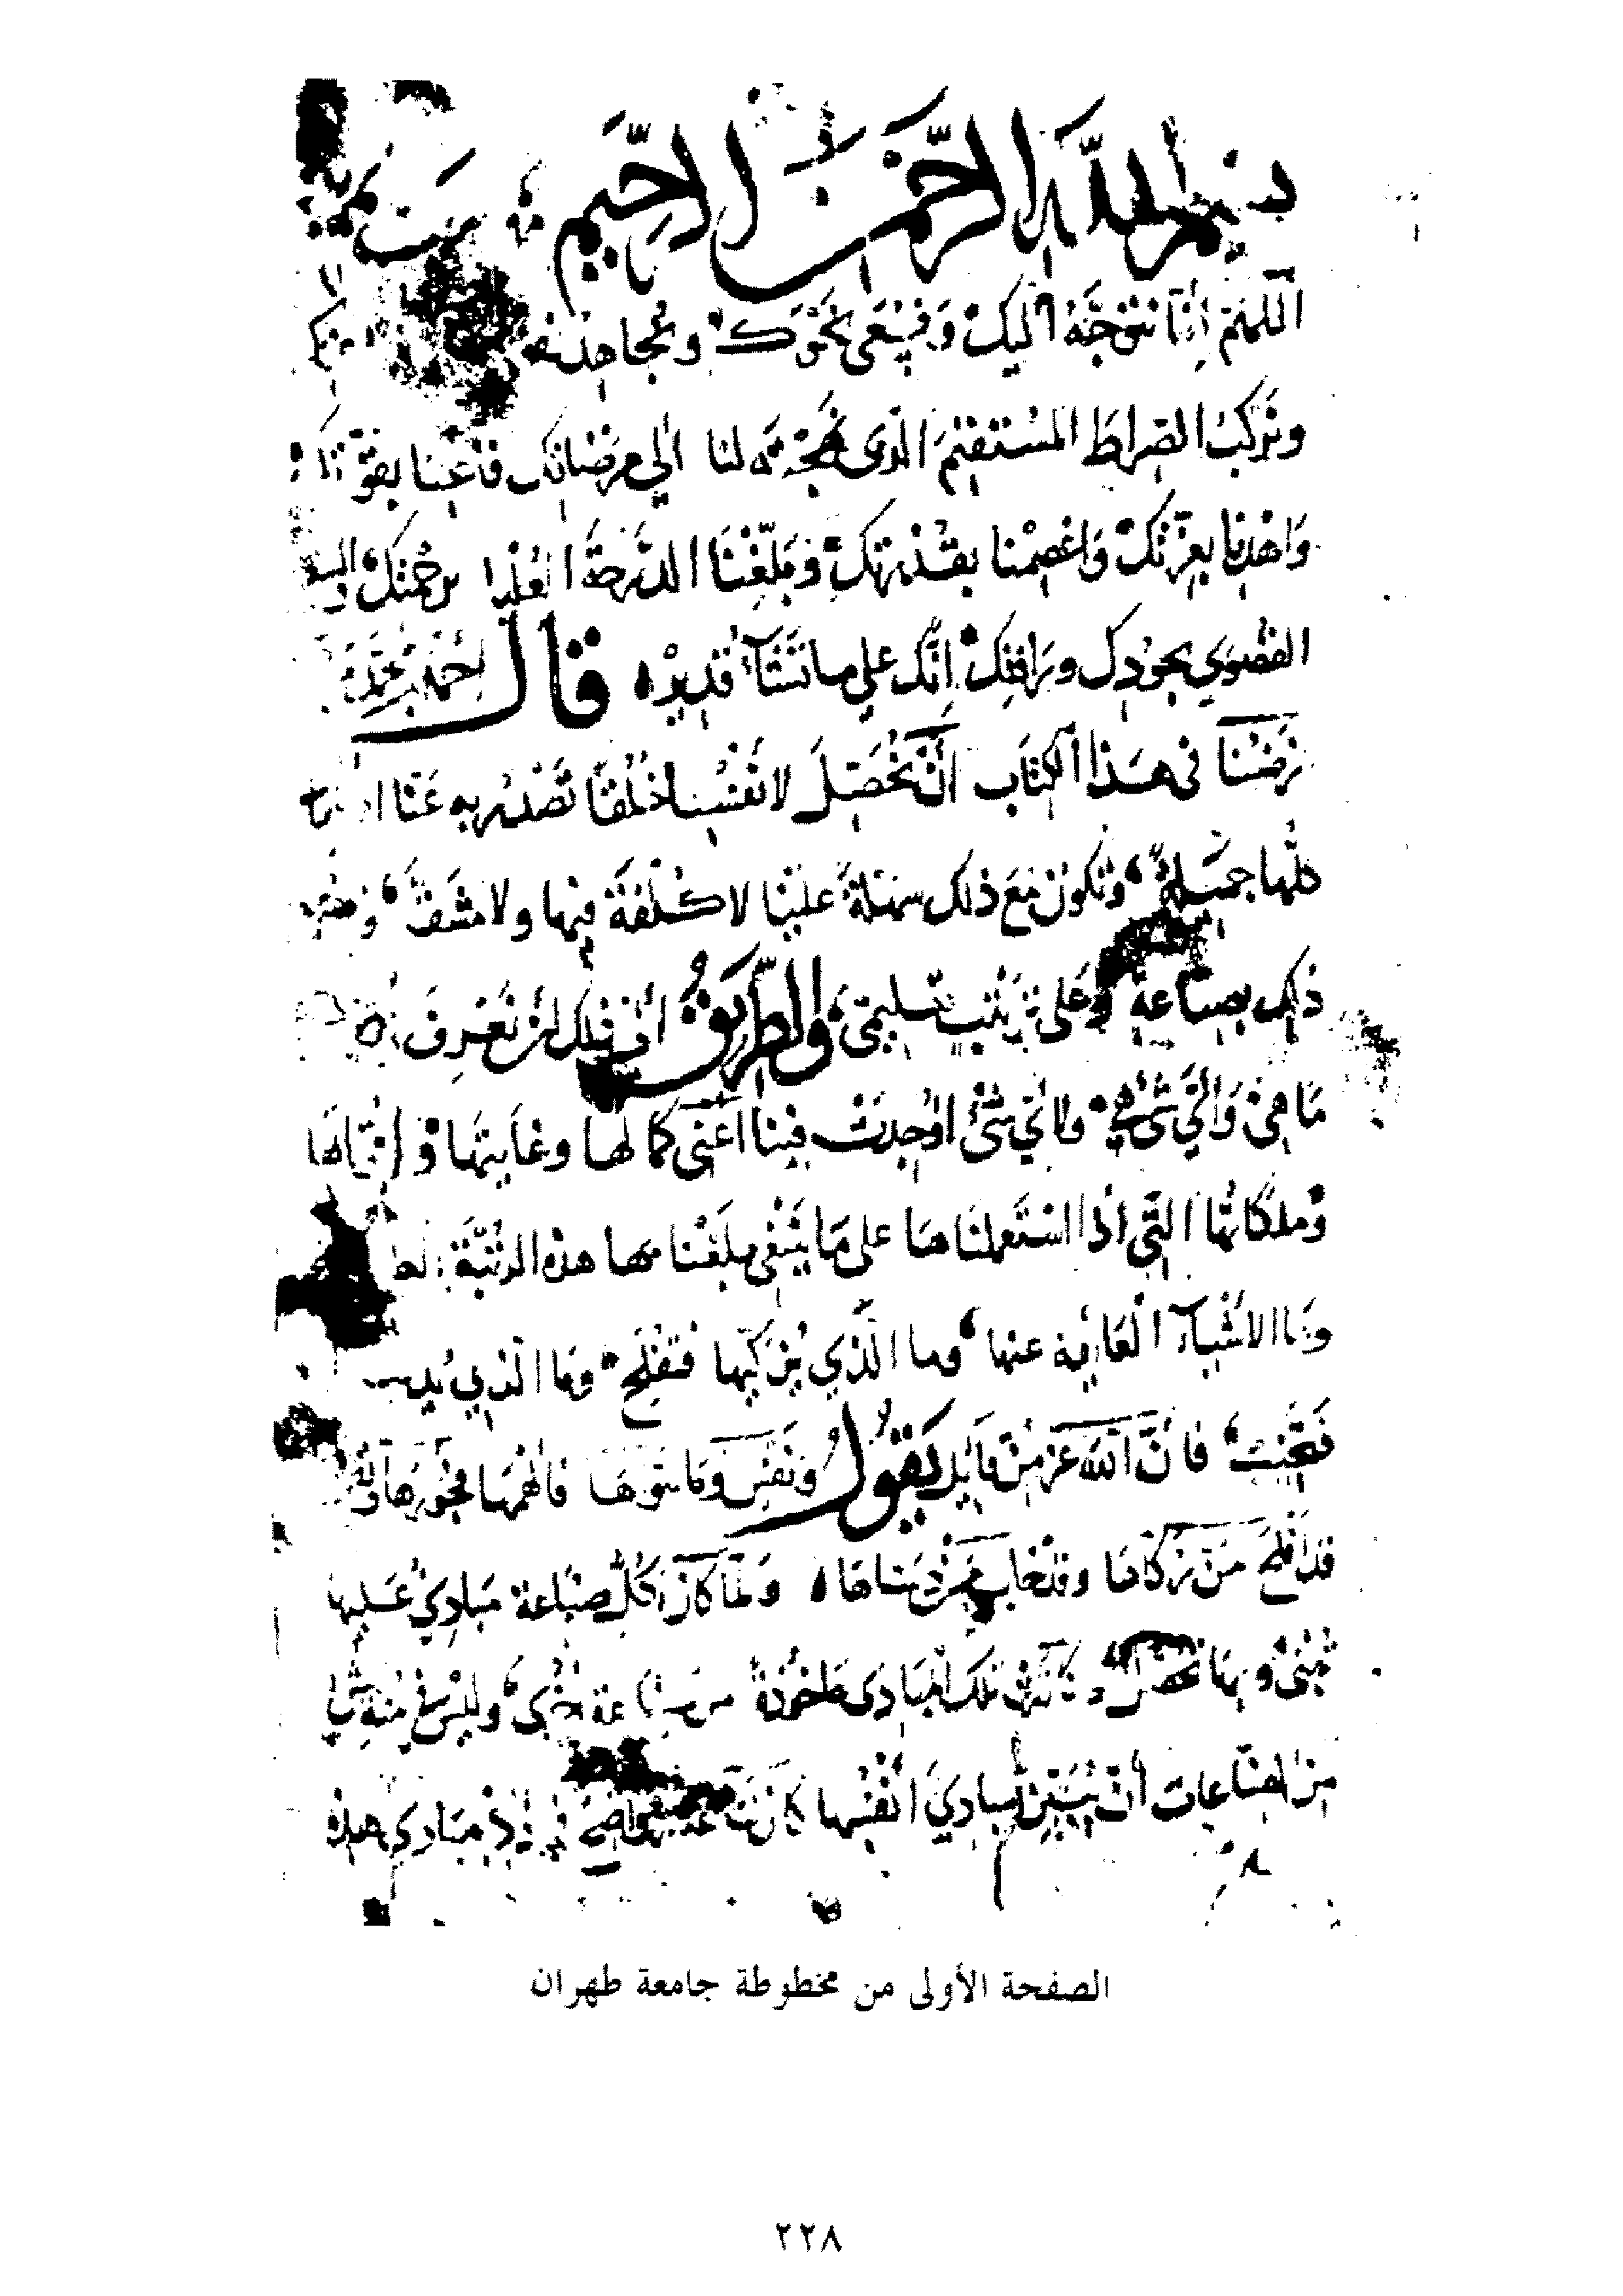 بسم الله الرحمن الرحيم
اللهم إنا نتوجه اليك ونسعى نحوك ونجاهد نفوسنا
ونركب الصراط المستقيم الذى نهجته لنا الى مرضاتك فأعنا بقوتك
واهدنا بعزتك واعصمنا بقدرتك وبلغنا الدرجة العليا برحمتك والسعادة
القصوى بجودك ورافتك إنك على ما تشآء قدير قال احمد بن محمد
غرضنا فى هذا الكتاب أن نحصل لانفسنا خلقا تصدر به عنا
كلها جميلة وتكون مع ذلك سهلة علينا لا كلفة فيها ولا مشقة
ذلك بصناعة وعلى ترتيب تعليمى والطريق فى ذلك أن نعرف
ما هى وأي شى هى ولأي شئ اوجدت فينا أعنى كمالها وغايتها وما
وملكاتها التى اذا استعملناها على ما ينبغى بلغنا بها هذه الرتبة
وما الاشيآء العايقة عنها وما الذي يزكيها فتفلح وما الذي
فتخيب فان الله عز من قائل يقول ونفس وما سوها فالهمها فجورها
قد أفلح من زكاها وقد خاب من دساها ولما كان لكل صناعة مبادئ عليها
تبنى وبها تحصل وكانت تلك المبادى ماخوذة من صناعة اخرى وليس فى شئ
من الصناعات أن تبين مبادي أنفسها كان لنا عذر واضح فى ذكر مبادى هذه
الصفحة الأولى من مخطوطة جامعة طهران
٢٢٨